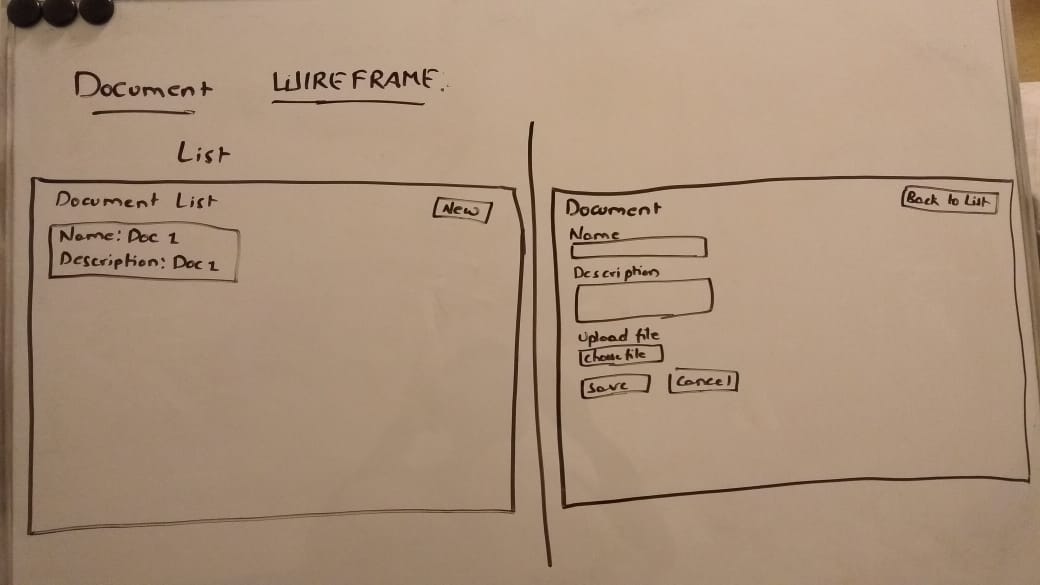 Document WIREFRAME.
List
Document List
New
Name: Doc 1
Description: Doc 1
Document
Back to List
Name
Description
Upload file
choose file
Save
Cancel